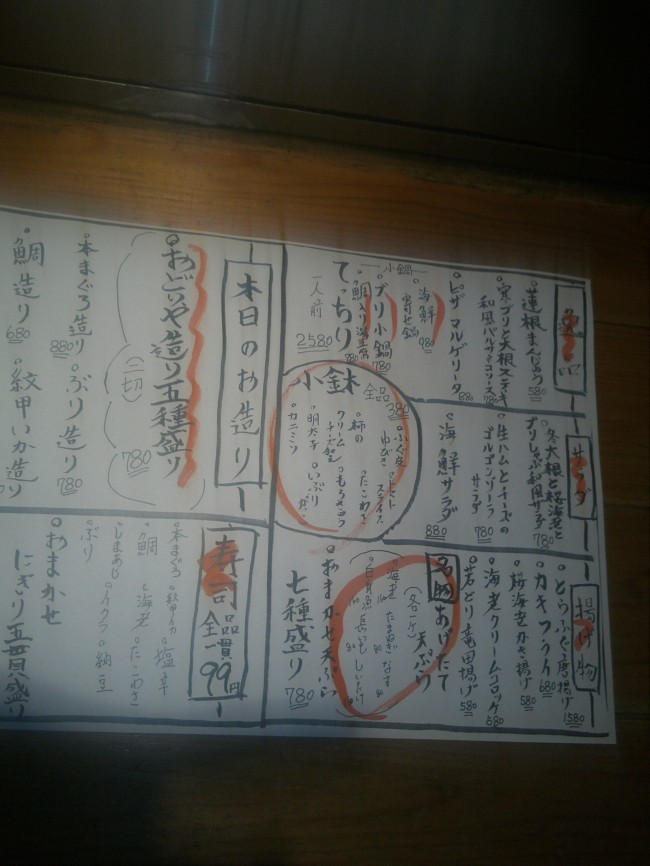 逸品
蓮根まんじゅう 580
寒ブリと大根ステーキ
和風バルサミコソース 780
ピザ マルゲリータ 880
小鍋
海鮮
寄せ鍋 980
ブリ小鍋 780
鯛入り湯豆腐 780
てっちり
一人前 2580
サラダ
冬大根と桜海老と
ブリしゃぶ和風サラダ 780
生ハムとチーズの
ゴルゴンゾーラ
サラダ 780
海鮮サラダ 880
小鉢 全品 380
ふぐ皮
ゆびき
トマト
スライス
柿の
クリーム
チーズ
たこわさ
もろきゅう
明太子
いぶり
カニミソ
揚げ物
とらふぐ唐揚げ 1580
カキフライ 680
桜海老かき揚げ 580
海老クリームコロッケ 680
若どり竜田揚げ 580
名物 あげたて
天ぷら
海老 たまねぎ なす
白身魚 長いも しいたけ
おまかせ天ぷら
七種盛り 780
本日のお造り
おどりや造り五種盛り
(二切) 780
本まぐろ造り 880
ぶり造り 780
鯛造り 680
紋甲いか造り
寿司 全品一貫 99円
本まぐろ 紋甲イカ 塩辛
鯛 海老 たこわさ
しまあじ イクラ 納豆
ぶり
おまかせ
にぎり五貫盛り